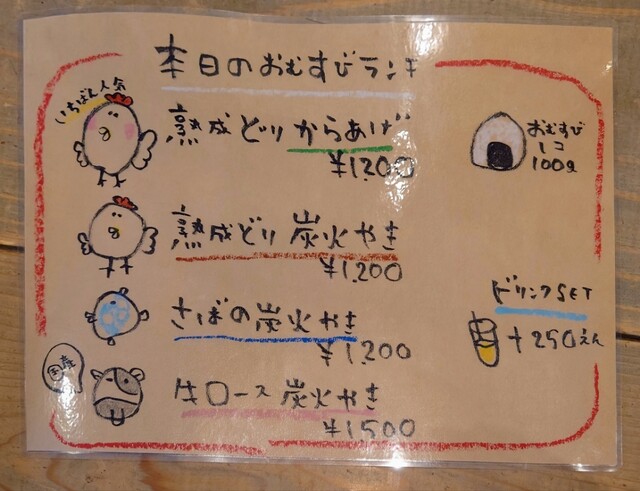 本日のおむすびランチ
いちばん人気
熟成どり からあげ
¥1,200
熟成どり 炭火やき
¥1,200
さばの炭火やき
¥1,200
国産
牛ロース 炭火やき
¥1,500
おむすび
1コ
100g
ドリンクSET
+250えん